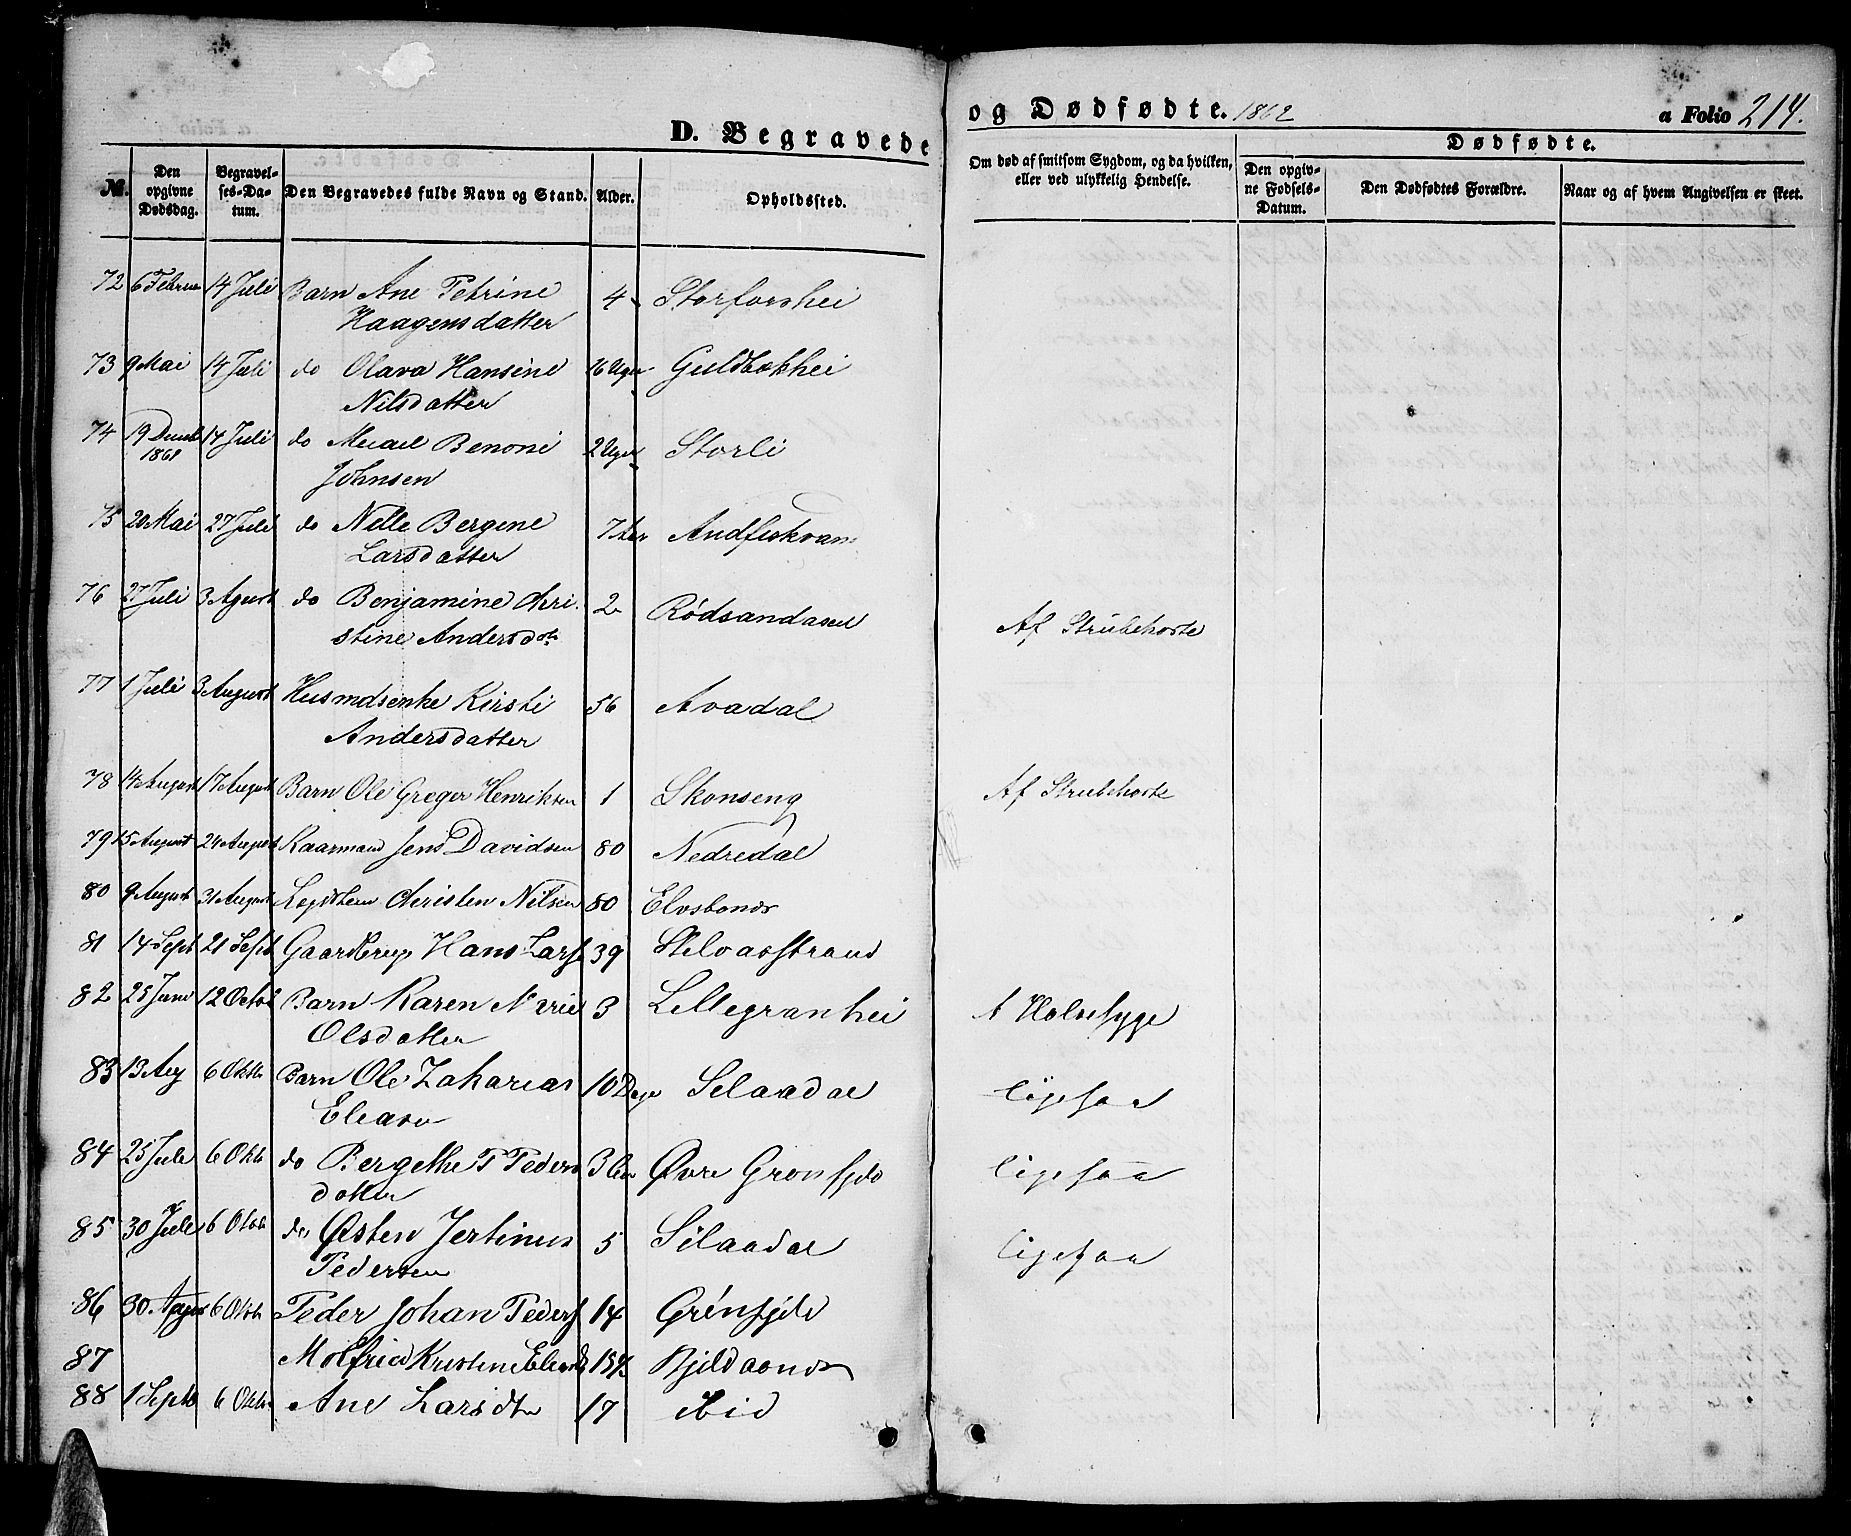 D. Begravede
og Dødfødte. 1862
a Folio 214.
No. Den opgivne Dødsdag. Begravelses-Datum. Den Begravedes fulde Navn og Stand. Alder. Opholdssted.
Om død af smitsom Sygdom, og da hvilken, eller ved ulykkelig Hendelse.
Dødfødte.
Den opgivne Fødsels-Datum. Den Dødfødtes Forældre. Naar og af hvem Angivelsen er skeet.
72 6 Februar 14 Juli Barn Ane Petrine 4 Storforshei
Haagensdatter
73 9 Mai 14 Juli do Olava Hansine 16 Uger
Nilsdatter
74 19 14 Juli do Benoni 2 Uger Storli
1861
Johnsen
75 20 Mai 27 Juli do Nelle Bergene 7 Andfiskvan
Larsdatter
76 27 Juli 3 Agust do Benjamine Chri- 2 Rødsandaseel
stine Andersdtr Af Strubehoste
77 1 Juli 3 August Husmdsenke Kirsti 56 Avadal
Andersdatter
78 14 August 17 August Barn Ole Greger Henriksen 1 Skonseng Af Strubehoste
79 15 August 24 August Kaarmand Jens Davidsen 80 Nedredal
80 9 August 31 August Christen Nilsen 80
81 14 Sept 21 Sept Hans Lars 39
82 25 12 Octob Barn Karen Marie 3 Lillegranhei
Olsdatter Halsesyge
83 13 Aug 6 Oktb Barn Ole Zakarias 10 Dage Selaadal
Ligesaa
84 25 Jule 6 Oktb do Bergethe P Peders 3 Øvre Gronfjeld Ligesaa
datter
85 30 Jule 6 Oktob do Østen 5 Silaadal
Pedersen Ligesaa
86 30 August 6 Oktob Peder Johan Peders 14 Grønfjeld
87 Kristine
88 1 Septb 6 Oktb Ane Larsdtr 17 ibid